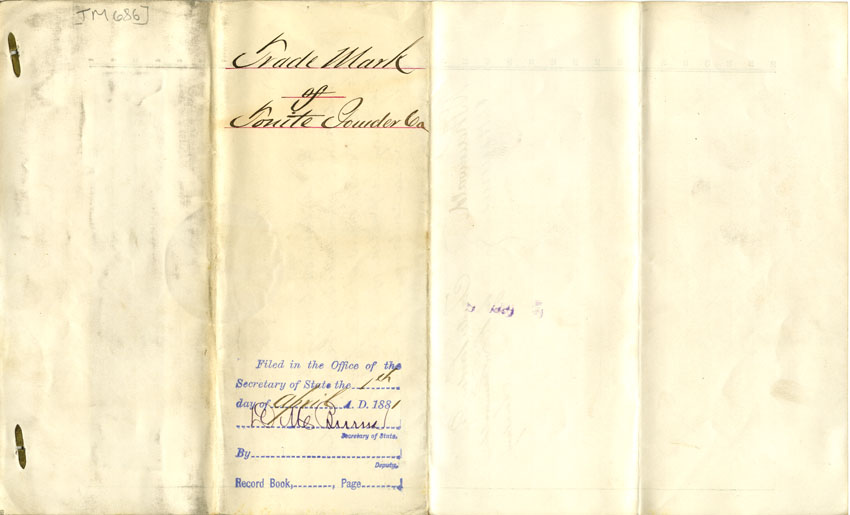 [TM 686]
Trade Mark
of
Tonite Powder Co
Filed in the Office of the
Secretary of State the 1th
day of April A. D. 1881
Secretary of State.
By
Deputy.
Record Book, , Page